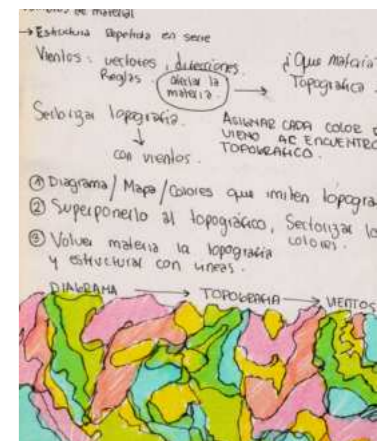 de material
→ Estructura Repetida en serie
Vientos: vectores, direcciones. ¿Que materia
Reglas. afectar la materia. → Topográfica
Sectorizar topografía.
↓
con vientos.
ASIGNAR CADA COLOR DE
VIENO AC ENCUENTRO
TOPOGRAFICO.
① Diagrama/Mapa/Colores que imiten topogra
② Superponerlo al topográfico, Sectorizar lo
colores.
③ Volver materia la topografía
y estructurar con lineas.
DIAGRAMA → TOPOGRAFIA → VIENTOS